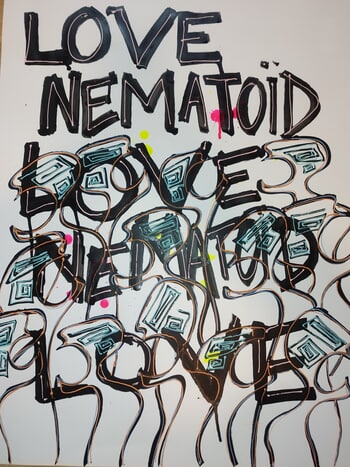 LOVE
NEMATOID
LOVE
NEMATOID
LOVE